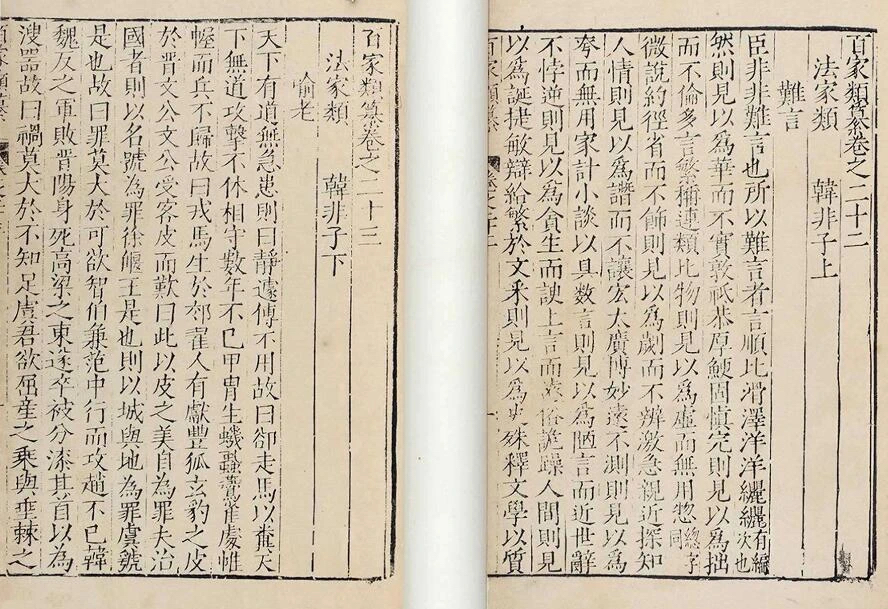 百家類纂卷之二十二
法家類 韓非子上
難言
臣非非難言也所以難言者言順比滑澤洋洋纚纚有編次也
然則見以爲華而不實敦祗恭厚鯁固慎完則見以爲拙
而不倫多言繁稱連類比物則見以爲虛而無用惣總字同
微說約徑省而不飾則見以爲劌而不辨激急親近探知
人情則見以爲譖而不讓宏大廣博妙遠不測則見以爲
夸而無用家計小談以具數言則見以爲陋言而近世辭
不悖逆則見以爲貪生而諛上言而遠俗詭躁人間則見
以爲誕捷敏辯給繁於文采則見以爲史殊釋文學以質
百家類纂 卷之廿二 一
百家類纂卷之二十三
法家類 韓非子下
喻老
天下有道無急患則曰靜遽傳不用故曰卻走馬以糞天
下無道攻擊不休相守數年不已甲冑生蟣蝨鷰雀處帷
幄而兵不歸故曰戎馬生於郊翟人有獻豐狐玄豹之皮
於晉文公文公受客皮而歎曰此以皮之美自為罪夫治
國者則以名號為罪徐偃王是也則以城與地為罪虞虢
是也故曰罪莫大於可欲智伯兼范中行而攻趙不已韓
魏反之軍敗晉陽身死高梁之東遂卒被分漆其首以為
溲器故曰禍莫大於不知足虞君欲屈産之乘與垂棘之
百家類纂